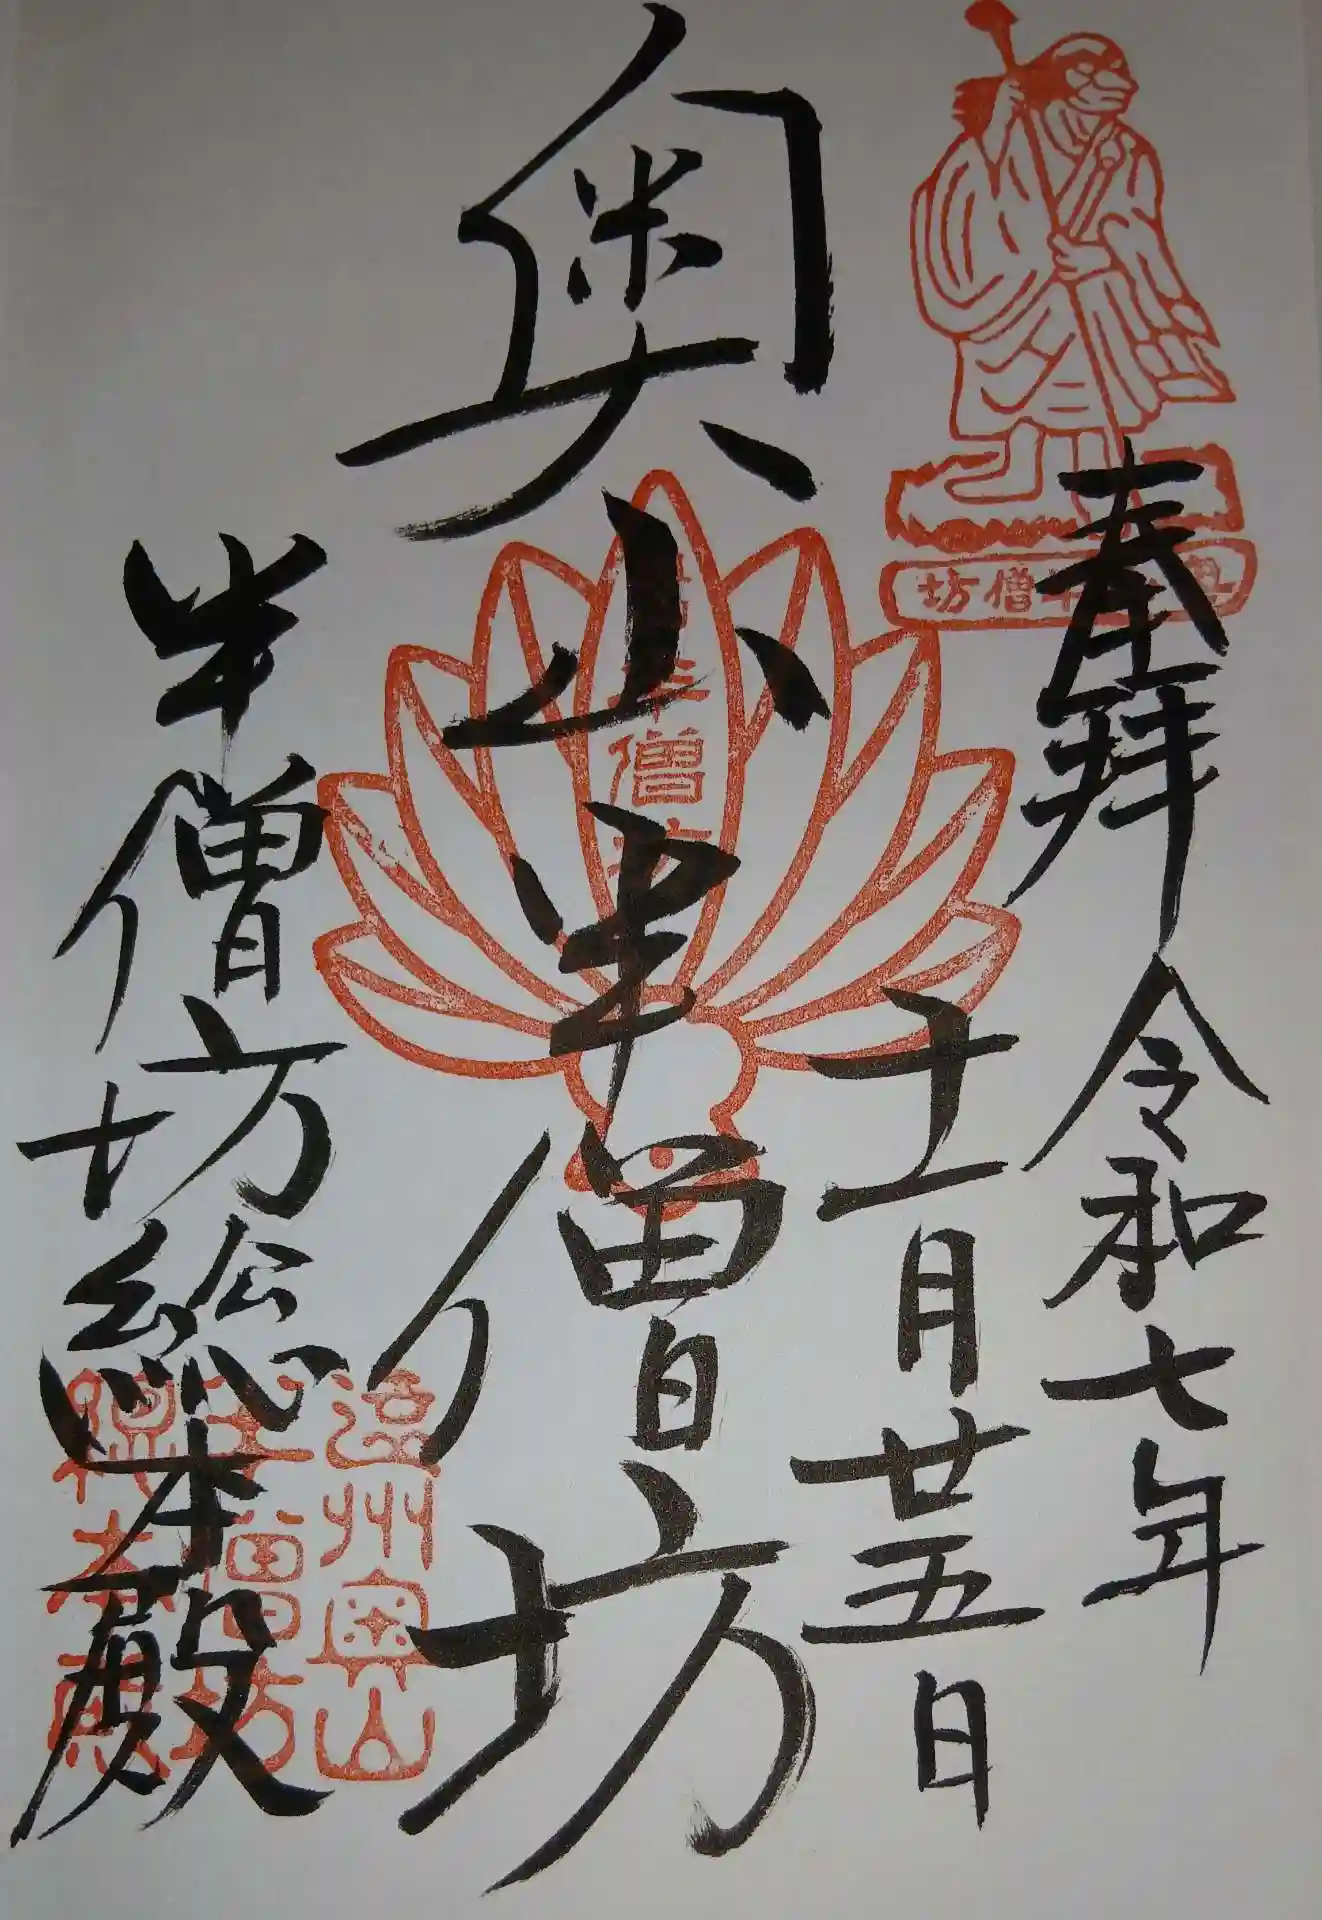 奉拝 令和七年
十一月廿五日
奥山半僧坊
半僧坊総本殿
半僧坊
遠州奥山
半僧坊
総本殿